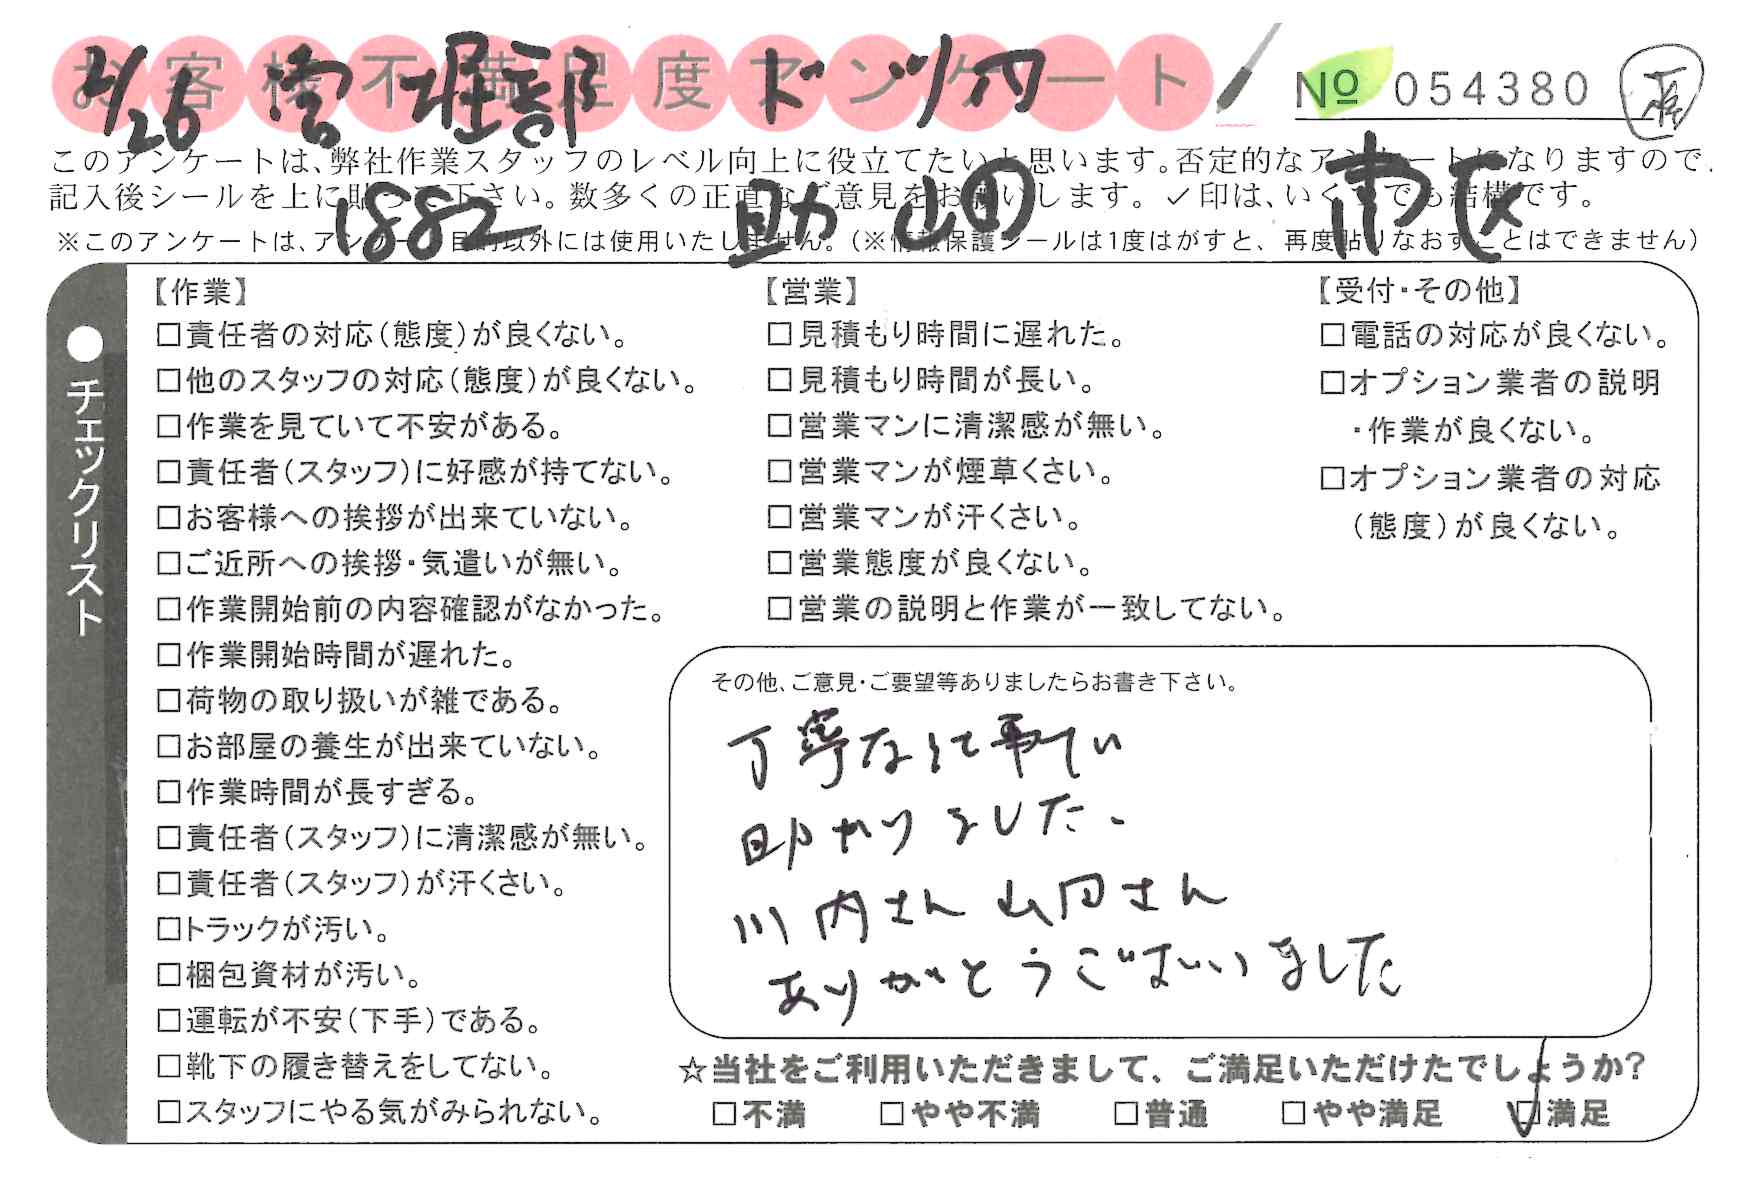 お客様不満足度アンケート
№ 054380
2/26 営 堀部 ド ツ内
1882 助 山田 市区
このアンケートは、弊社作業スタッフのレベル向上に役立てたいと思います。否定的なアンケートになりますので、
記入後シールを上に貼って下さい。数多くの正直なご意見をお願いします。✓印は、いくつでも結構です。
※このアンケートは、アンケート目的以外には使用いたしません。（※情報保護シールは1度はがすと、再度貼りなおすことはできません）
●チェックリスト
【作業】
□責任者の対応（態度）が良くない。
□他のスタッフの対応（態度）が良くない。
□作業を見ていて不安がある。
□責任者（スタッフ）に好感が持てない。
□お客様への挨拶が出来ていない。
□ご近所への挨拶・気遣いが無い。
□作業開始前の内容確認がなかった。
□作業開始時間が遅れた。
□荷物の取り扱いが雑である。
□お部屋の養生が出来ていない。
□作業時間が長すぎる。
□責任者（スタッフ）に清潔感が無い。
□責任者（スタッフ）が汗くさい。
□トラックが汚い。
□梱包資材が汚い。
□運転が不安（下手）である。
□靴下の履き替えをしてない。
□スタッフにやる気がみられない。
【営業】
□見積もり時間に遅れた。
□見積もり時間が長い。
□営業マンに清潔感が無い。
□営業マンが煙草くさい。
□営業マンが汗くさい。
□営業態度が良くない。
□営業の説明と作業が一致してない。
【受付・その他】
□電話の対応が良くない。
□オプション業者の説明
・作業が良くない。
□オプション業者の対応
（態度）が良くない。
その他、ご意見・ご要望等ありましたらお書き下さい。
丁寧な仕事で
助かりました、
川内さん 山田さん
ありがとうございました
☆当社をご利用いただきまして、ご満足いただけたでしょうか?
□不満 □やや不満 □普通 □やや満足 ☑満足